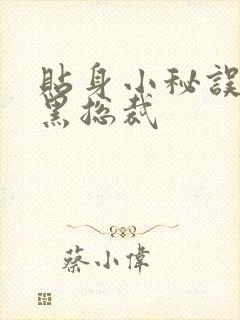 貼身小秘誤
黑捴裁
蔡小偉